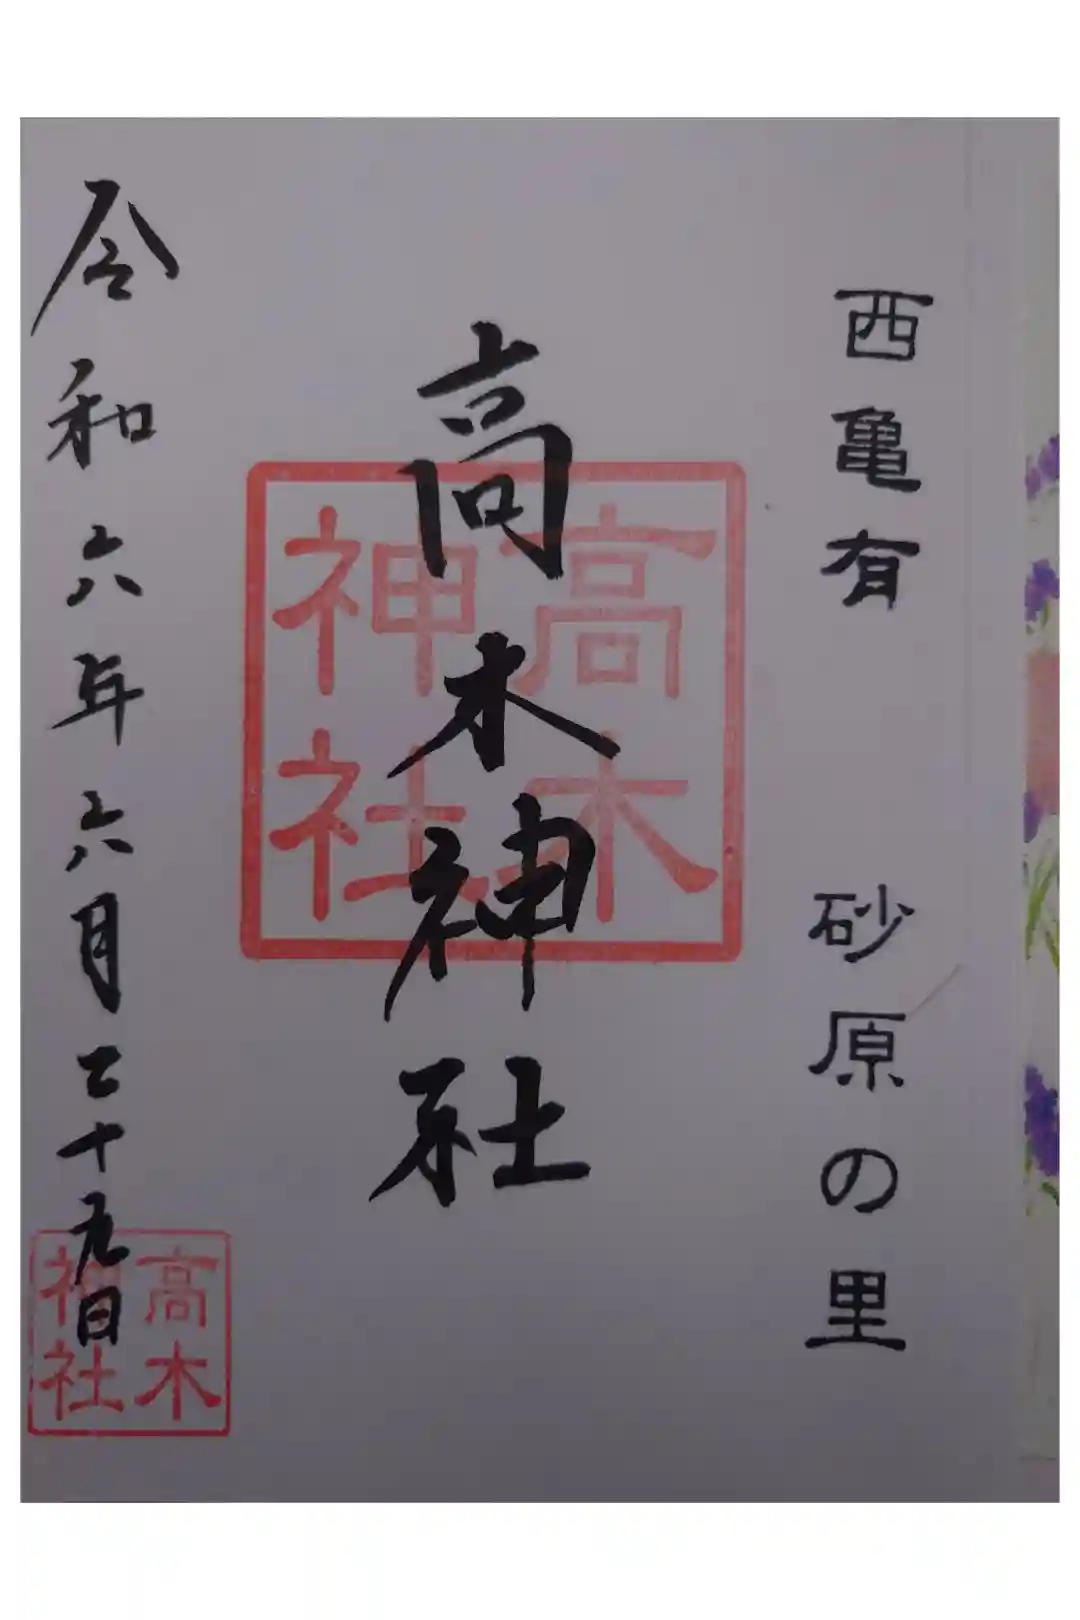 西亀有　砂原の里
高木神社
高木神社
令和六年六月二十九日
高木神社